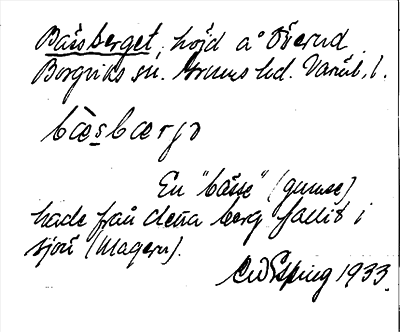 Båssberget, höjd å Överud
Borgviks sn. Grums hd. Värml. l.
bæsbærjə
En "båsse" (gumse)
hade från detta berg fallit i
sjön (Magern).
1933.